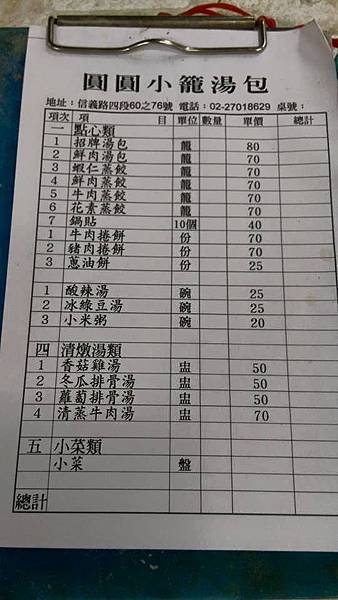 圓圓小籠湯包
地址：信義路四段60之76號 電話：02-27018629 桌號：
項次 項 目 單位 數量 單價 總計
一 點心類
1 招牌湯包 籠 80
2 鮮肉湯包 籠 70
3 蝦仁蒸餃 籠 70
4 鮮肉蒸餃 籠 70
5 牛肉蒸餃 籠 70
6 花素蒸餃 籠 70
7 鍋貼 10個 40
1 牛肉捲餅 份 70
2 豬肉捲餅 份 70
3 蔥油餅 份 25
1 酸辣湯 碗 25
2 冰綠豆湯 碗 25
3 小米粥 碗 20
四 清燉湯類
1 香菇雞湯 盅 50
2 冬瓜排骨湯 盅 50
3 蘿蔔排骨湯 盅 50
4 清蒸牛肉湯 盅 70
五 小菜類
小菜 盤
總計